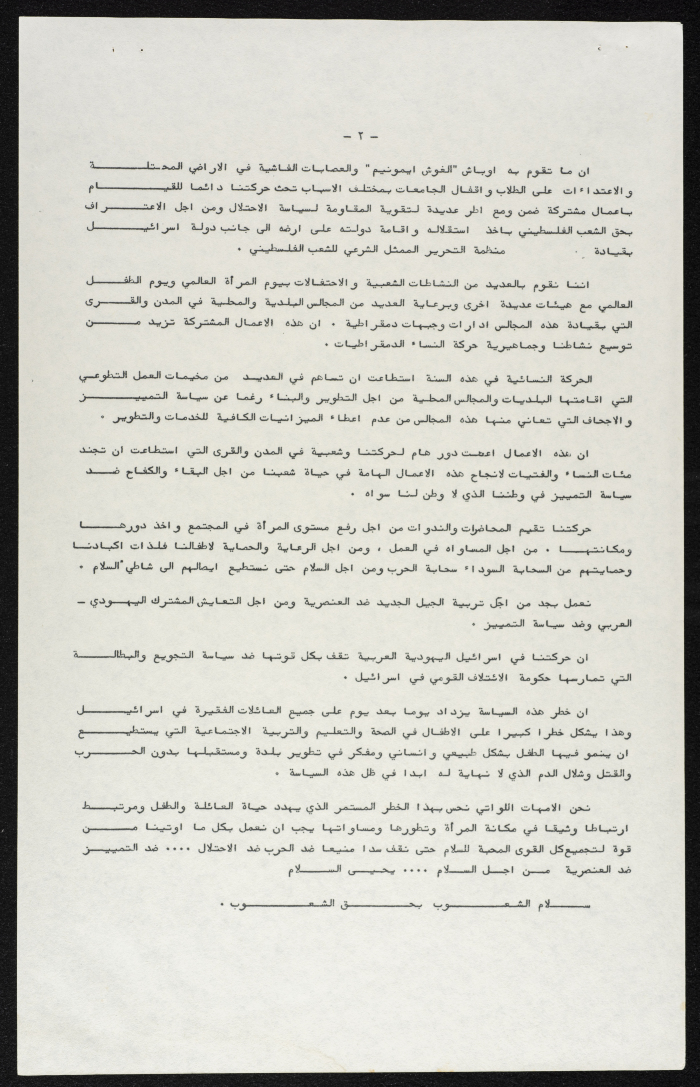 - ٢ -
ان ما تقوم به اوباش "الغوش ايمونيم" والعصابات الفاشية في الاراضي المحتلة
والاعتداءات على الطلاب واقفال الجامعات بمختلف الاسباب تحث حركتنا دائما للقيام
باعمال مشتركة ضمن ومع اطر عديدة لتقوية المقاومة لسياسة الاحتلال ومن اجل الاعتراف
بحق الشعب الفلسطيني باخذ استقلاله واقامة دولته على ارضه الى جانب دولة اسرائيل
بقيادة منظمة التحرير الممثل الشرعي للشعب الفلسطيني .
اننا نقوم بالعديد من النشاطات الشعبية والاحتفالات بيوم المرأة العالمي ويوم الطفل
العالمي مع هيئات عديدة اخرى وبرعاية العديد من المجالس البلدية والمحلية في المدن والقرى
التي بقيادة هذه المجالس ادارات وجبهات دمقراطية . ان هذه الاعمال المشتركة تزيد من
توسيع نشاطنا وجماهيرية حركة النساء الدمقراطيات .
الحركة النسائية في هذه السنة استطاعت ان تساهم في العديد من مخيمات العمل التطوعي
التي اقامتها البلديات والمجالس المحلية من اجل التطوير والبناء رغما عن سياسة التمييز
والاجحاف التي تعاني منها هذه المجالس من عدم اعطاء الميزانيات الكافية للخدمات والتطوير .
ان هذه الاعمال اعطت دور هام لحركتنا وشعبية في المدن والقرى التي استطاعت ان تجند
مئات النساء والفتيات لانجاح هذه الاعمال الهامة في حياة شعبنا من اجل البقاء والكفاح ضد
سياسة التمييز في وطننا الذي لا وطن لنا سواه .
حركتنا تقيم المحاضرات والندوات من اجل رفع مستوى المرأة في المجتمع واخذ دورها
ومكانتها . من اجل المساواه في العمل ، ومن اجل الرعاية والحماية لاطفالنا فلذات اكبادنا
وحمايتهم من السحابة السوداء سحابة الحرب ومن اجل السلام حتى نستطيع ايصالهم الى شاطيء السلام .
نعمل بجد من اجل تربية الجيل الجديد ضد العنصرية ومن اجل التعايش المشترك اليهودي -
العربي وضد سياسة التمييز .
ان حركتنا في اسرائيل اليهودية العربية تقف بكل قوتها ضد سياسة التجويع والبطالة
التي تمارسها حكومة الائتلاف القومي في اسرائيل .
ان خطر هذه السياسة يزداد يوما بعد يوم على جميع العائلات الفقيرة في اسرائيل
وهذا يشكل خطرا كبيرا على الاطفال في الصحة والتعليم والتربية الاجتماعية التي يستطيع
ان ينمو فيها الطفل بشكل طبيعي وانساني ومفكر في تطوير بلدة ومستقبلها بدون الحرب
والقتل وشلال الدم الذي لا نهاية له ابدا في ظل هذه السياسة .
نحن الامهات اللواتي نحس بهذا الخطر المستمر الذي يهدد حياة العائلة والطفل ومرتبط
ارتباطا وثيقا في مكانة المرأة وتطورها ومساواتها يجب ان نعمل بكل ما اوتينا من
قوة لتجميع كل القوى المحبة للسلام حتى نقف سدا منيعا ضد الحرب ضد الاحتلال .... ضد التمييز
ضد العنصرية من اجل السلام .... يحيى السلام
سلام الشعوب بحق الشعوب .